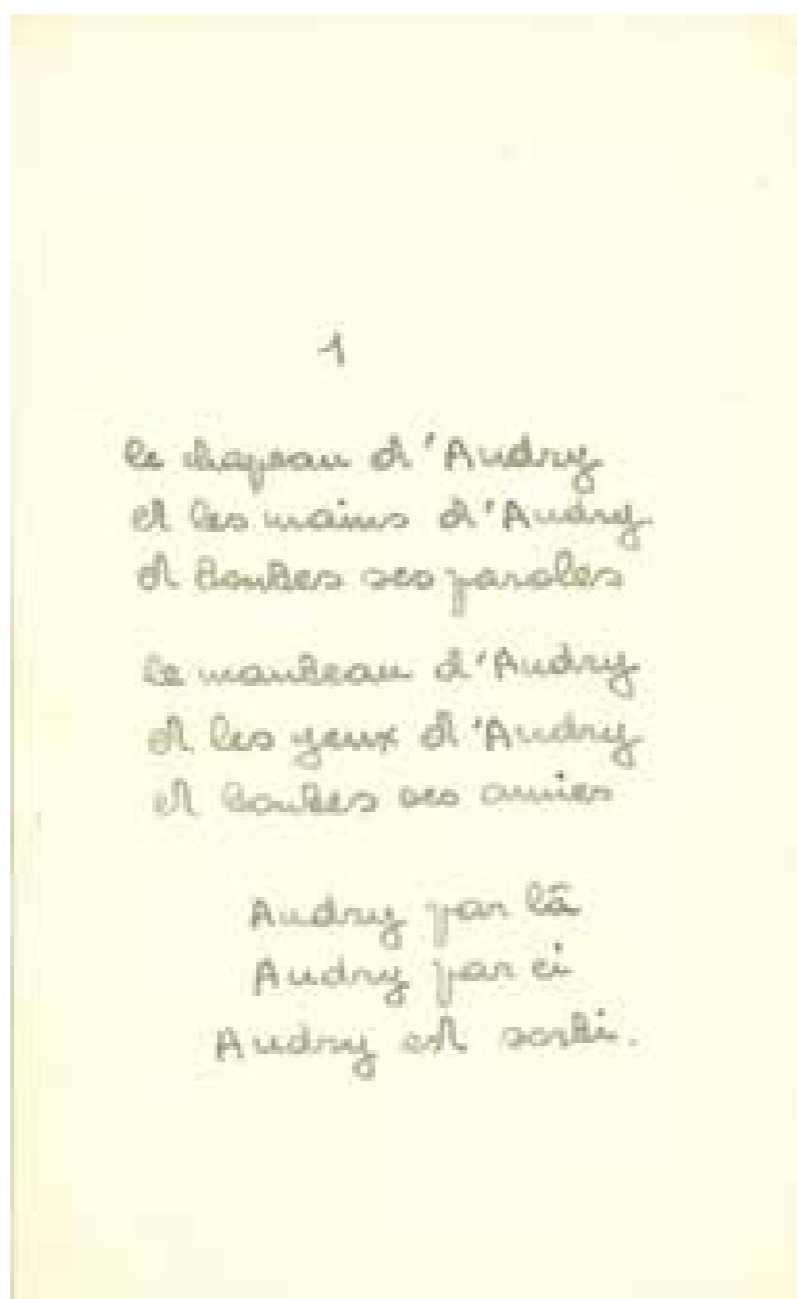 1
le chapeau d'Audry
et les mains d'Audry
et toutes ses paroles
le manteau d'Audry
et les yeux d'Audry
et toutes ses amies
Audry par là
Audry par ci
Audry est sorti.